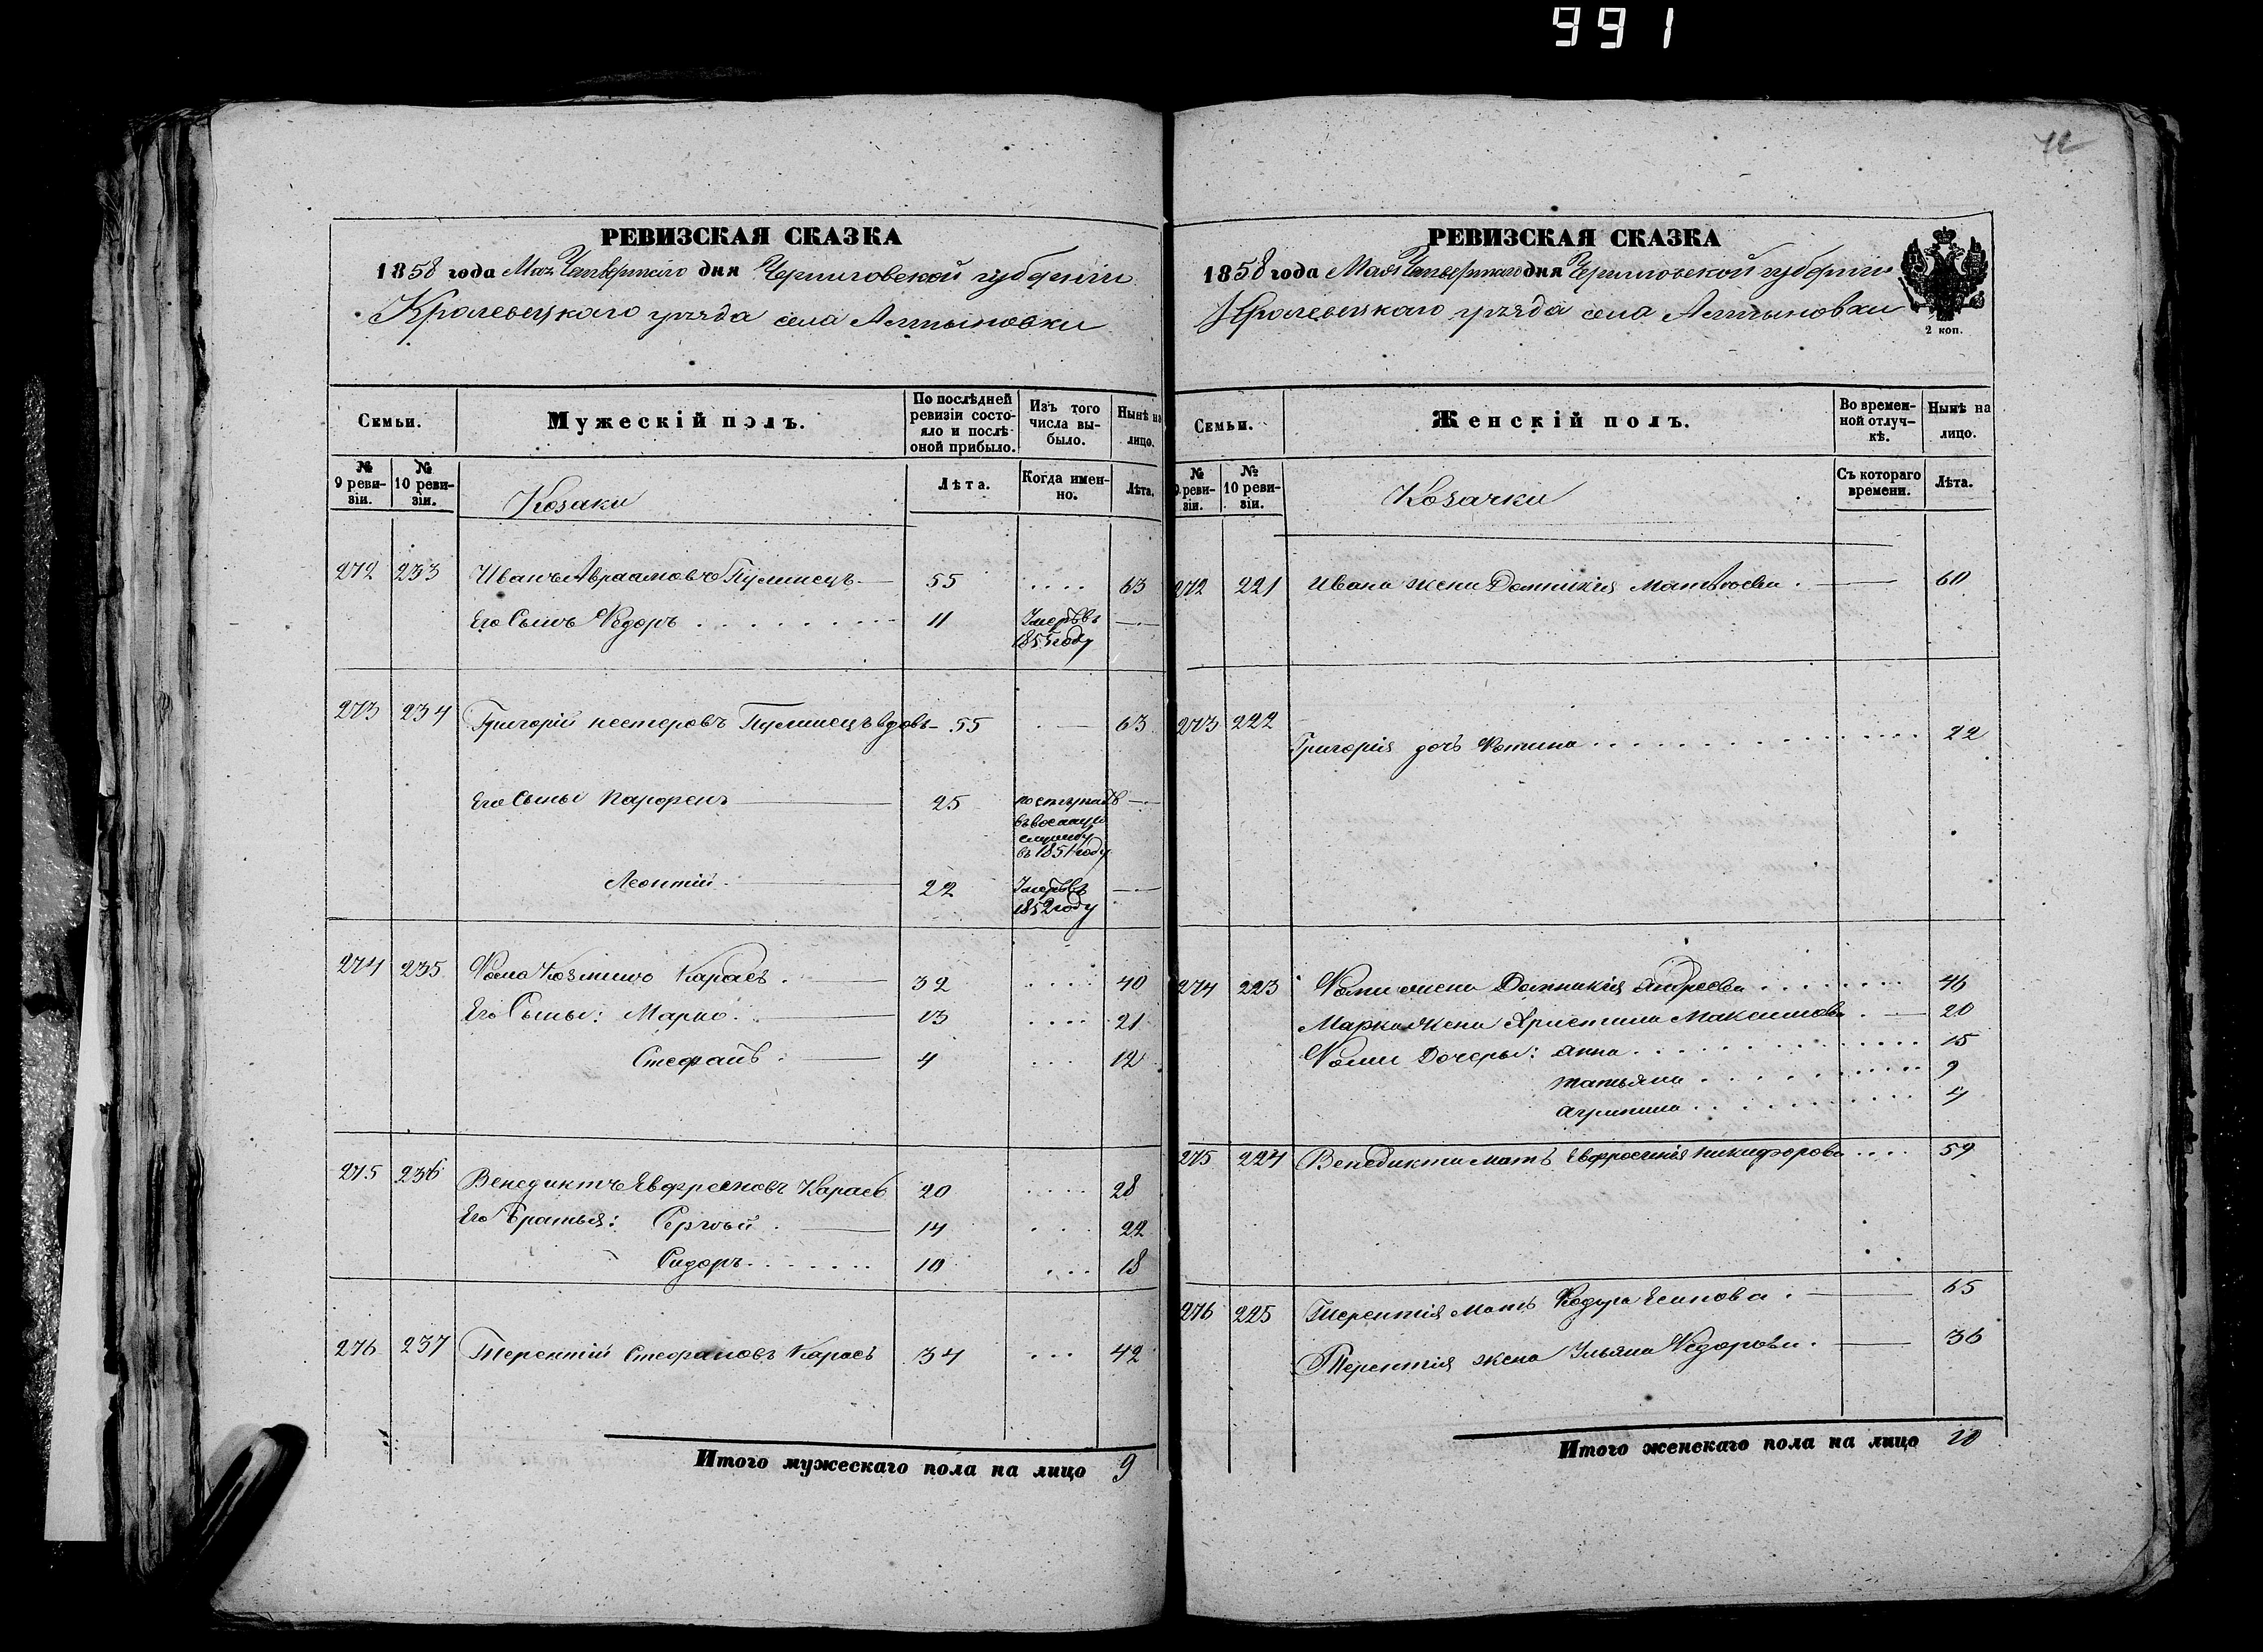 991
РЕВИЗСКАЯ СКАЗКА
1858 года Мая Четвертаго дня Черниговской губернiи
Кролевецкаго уѣзда села Алтыновки
Семьи.
Мужескiй полъ.
По послѣдней ревизiи состо-
яло и послѣ оной прибыло.
Изъ того числа вы-
было.
Нынѣ на лицо.
№ 9 реви-
зiи.
№ 10 реви-
зiи.
Козаки
Лѣта.
Когда имен-
но.
Лѣта.
272 233 Иванъ Авраамовъ Пулинецъ 55 .... 63
Его Сынъ Ѳедоръ 11 Умеръ въ —
1855 году
273 234 Григорiй нестеровъ Пулинецъ вдовъ 55 — 63
Его Сыны Парфенъ 25 поступилъ —
въ военную
службу
въ 1851 году
Леонтiй 22 Умеръ въ —
1852 году
274 235 Ѳома Козминъ Карасъ 32 .... 40
Его Сыны: Марко 13 .... 21
Стефанъ 4 ... 12
275 236 Венедиктъ Евфресновъ Карасъ 20 .... 28
Его Братья: Сергѣй 14 ... 22
Сидоръ 10 ... 18
276 237 Терентiй Стефановъ Карасъ 34 ... 42
Итого мужескаго пола на лицо 9
РЕВИЗСКАЯ СКАЗКА
1858 года Мая Четвертаго дня Черниговской губернiи
Кролевецкаго уѣзда села Алтыновки
2 коп.
Семьи.
Женскiй полъ.
Во времен-
ной отлуч-
кѣ.
Нынѣ на лицо.
№ 9 реви-
зiи.
№ 10 реви-
зiи.
Козачки
Съ котораго времени.
Лѣта.
272 221 Ивана жена Домникiя Матѣѣева — 60
273 222
Григорiя дочь Фотина 22
274 223 Ѳомы жена Домникiя Андреева 46
Марка жена Христина Максимова — 20
Ѳомы Дочеры: Анна 15
татьяна 9
агрипина 4
275 224 Венедикта мать Евфросинiя никифорова 59
276 225 Терентiя Мать Федура Есипова — 65
Терентiя жена Ульяна Ѳедорова — 36
Итого женскаго пола на лицо 10